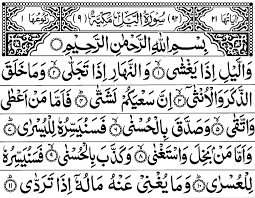 اٰیَاتُهَا ٢١ (٩٢) سُوْرَةُ الَّيْلِ مَكِّيَّةٌ (٩) رُكُوْعُهَا ١
بِسْمِ اللّٰهِ الرَّحْمٰنِ الرَّحِيْمِ
وَالَّيْلِ اِذَا يَغْشٰى ۝١ وَالنَّهَارِ اِذَا تَجَلّٰى ۝٢ وَمَا خَلَقَ
الذَّكَرَ وَالْاُنْثٰٓى ۝٣ اِنَّ سَعْيَكُمْ لَشَتّٰى ۝٤ فَاَمَّا مَنْ اَعْطٰى
وَاتَّقٰى ۝٥ وَصَدَّقَ بِالْحُسْنٰى ۝٦ فَسَنُيَسِّرُهٗ لِلْيُسْرٰى ۝٧
وَاَمَّا مَنْۢ بَخِلَ وَاسْتَغْنٰى ۝٨ وَكَذَّبَ بِالْحُسْنٰى ۝٩ فَسَنُيَسِّرُهٗ
لِلْعُسْرٰى ۝١٠ وَمَا يُغْنِيْ عَنْهُ مَالُهٗٓ اِذَا تَرَدّٰى ۝١١